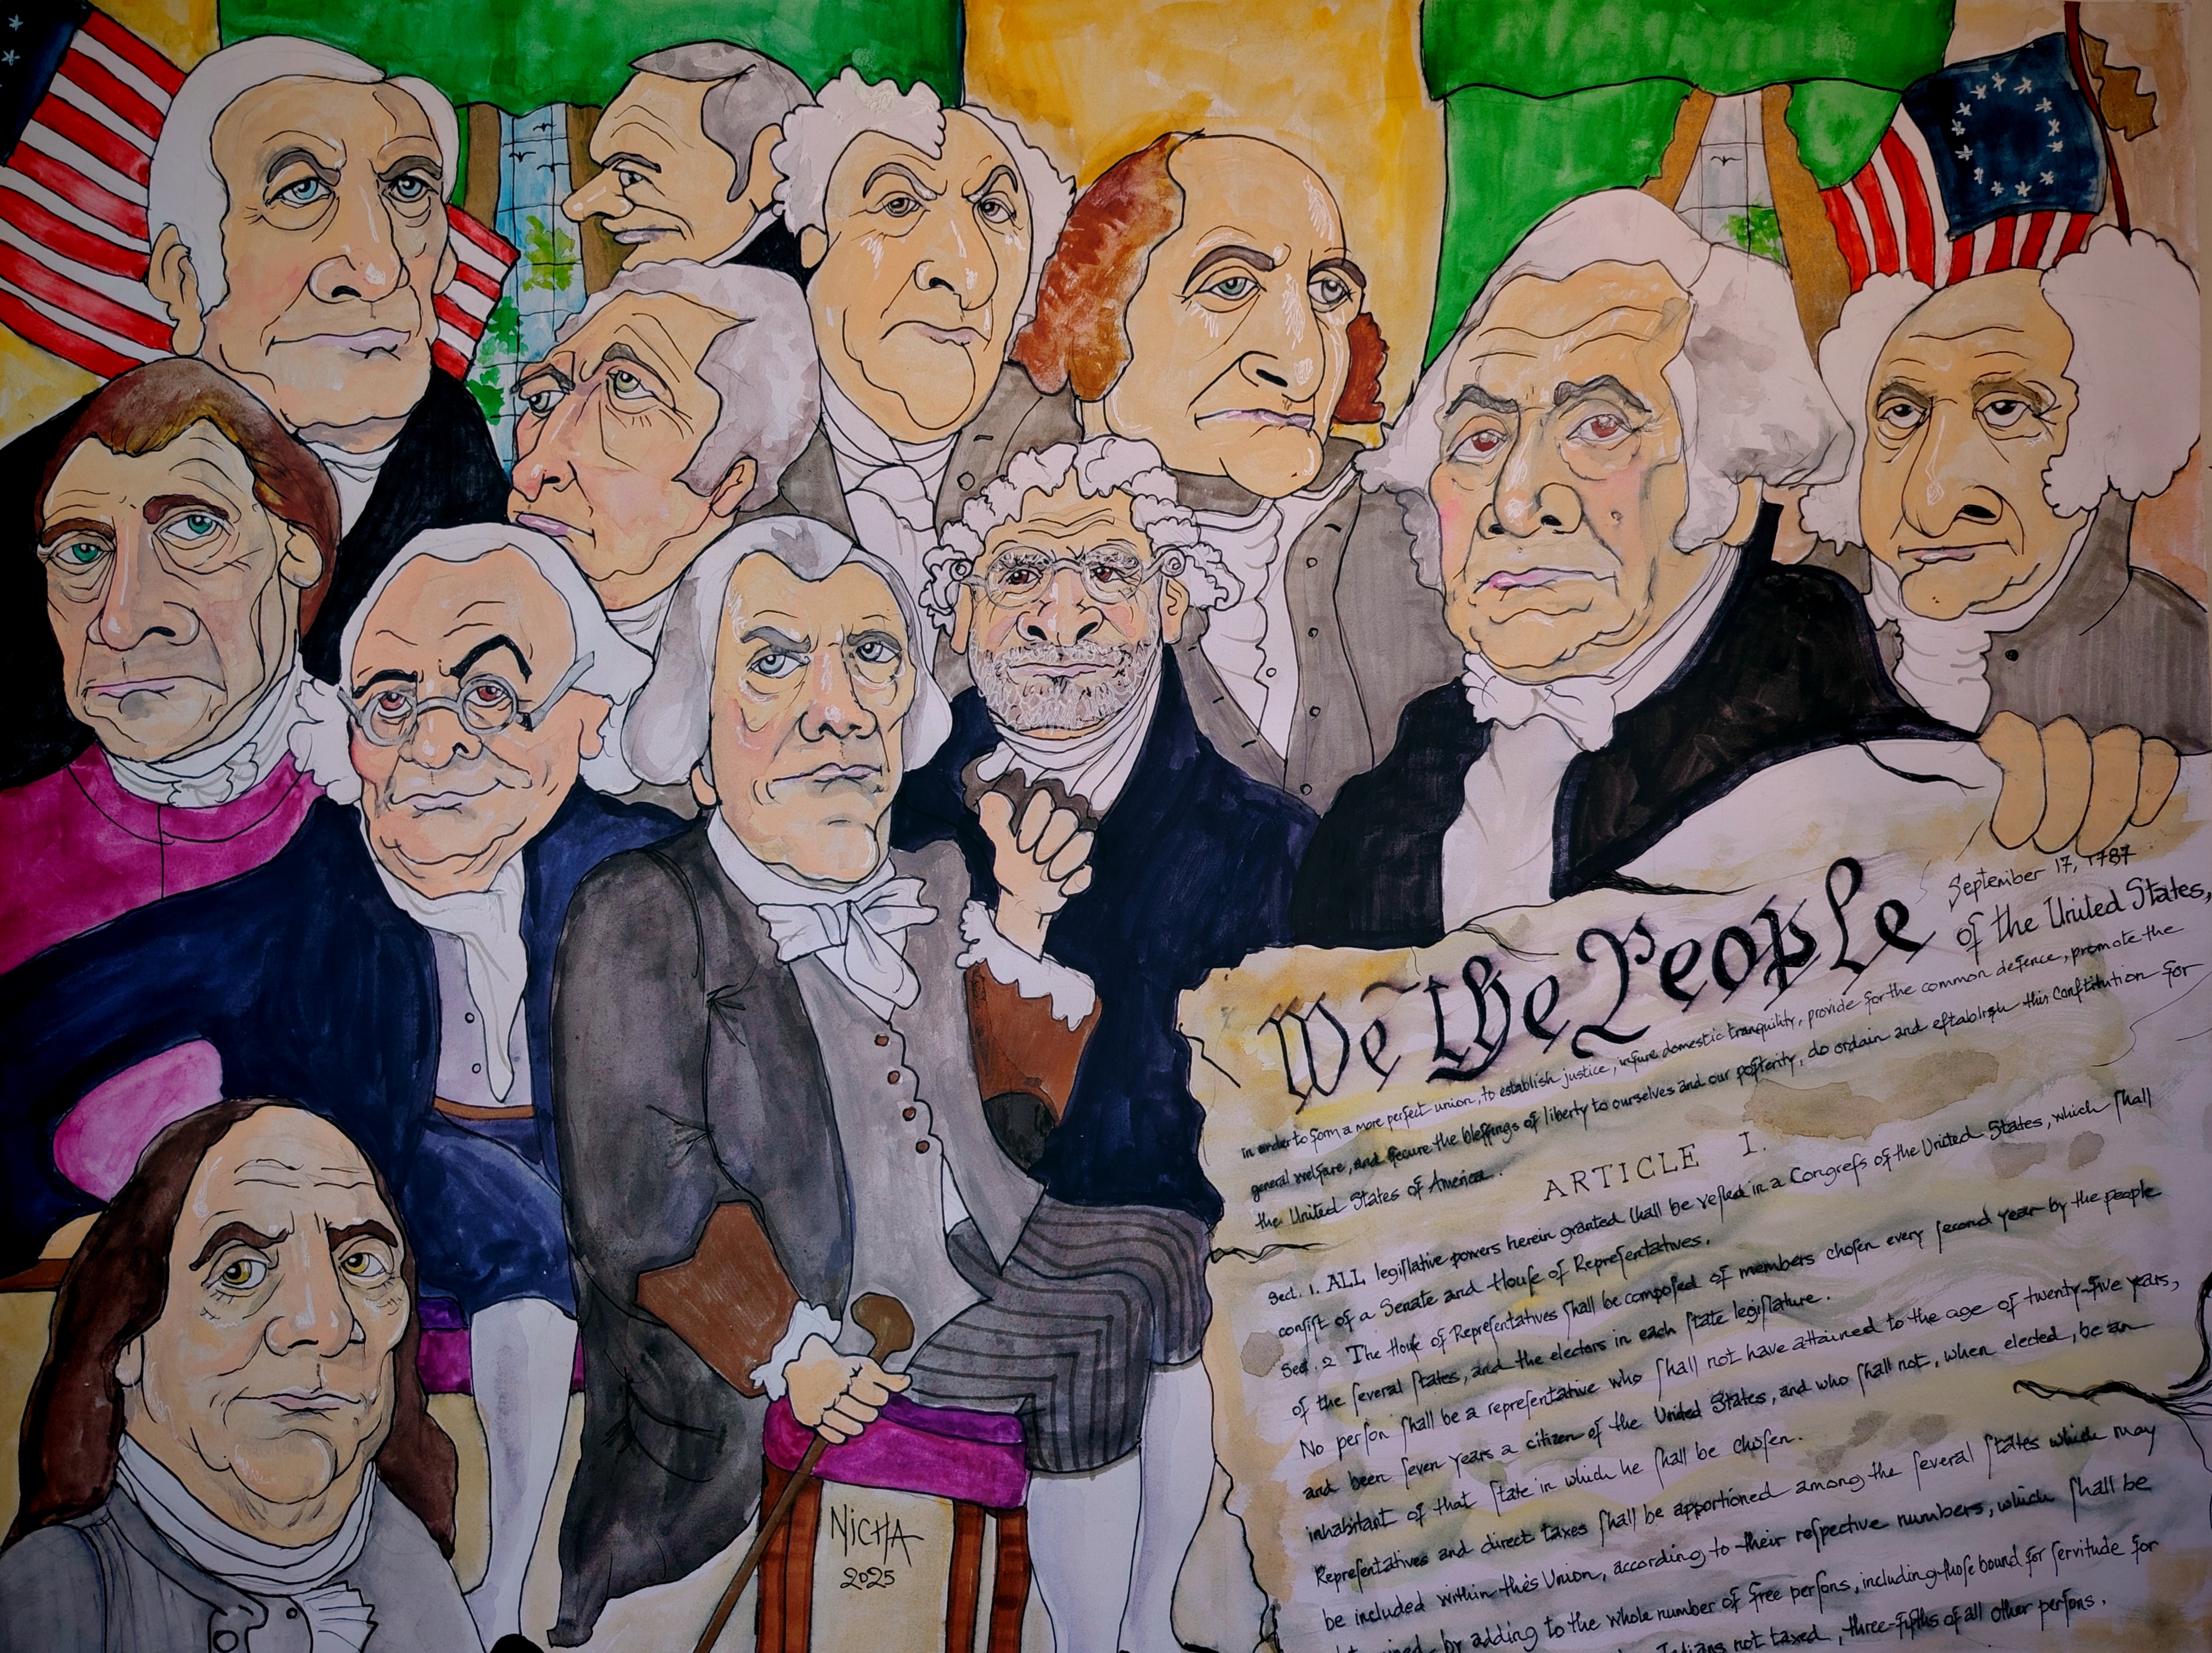 September 17, 1787
We the People of the United States,
in order to form a more perfect union, to establish justice, inſure domestic tranquility, provide for the common defence, promote the
general welfare, and ſecure the bleſſings of liberty to ourselves and our poſterity, do ordain and eſtabliſh this Conſtitution for
the United States of America.
ARTICLE I.
Sect. 1. ALL legiſlative powers herein granted ſhall be veſted in a Congreſs of the United States, which ſhall
conſiſt of a Senate and Houſe of Repreſentatives.
Sect. 2 The Houſe of Repreſentatives ſhall be compoſed of members choſen every ſecond year by the people
of the ſeveral ſtates, and the electors in each ſtate legiſlature.
No perſon ſhall be a repreſentative who ſhall not have attained to the age of twenty-five years,
and been ſeven years a citizen of the United States, and who ſhall not, when elected, be an
inhabitant of that ſtate in which he ſhall be choſen.
Repreſentatives and direct taxes ſhall be apportioned among the ſeveral ſtates which may
be included within this Union, according to their reſpective numbers, which ſhall be
by adding to the whole number of free perſons, including thoſe bound for ſervitude for
Indians not taxed, three-fifths of all other perſons.
NiCHA
2025